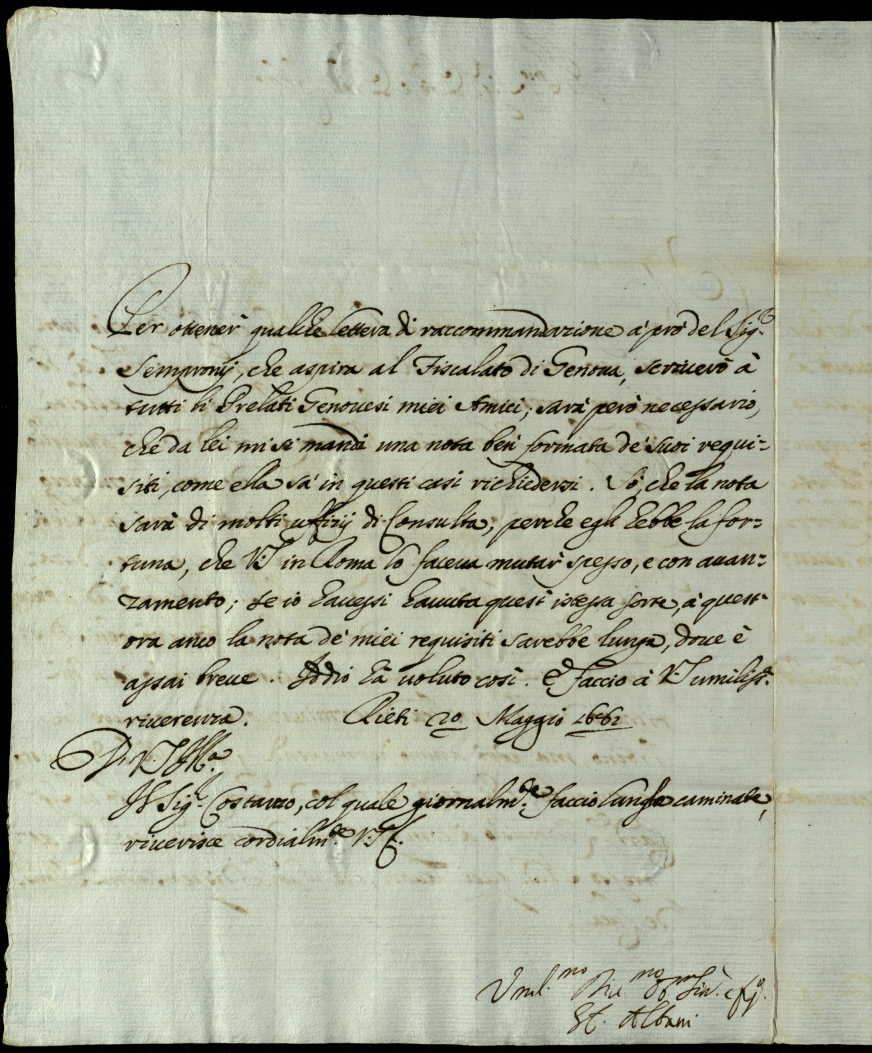 Per ottener qualche lettera di raccommandazione à prò del Sig.r
Sempronij, che aspira al Fiscalato di Genova, scriverò à
tutti li Prelati Genovesi miei Amici; sarà però necessario,
che da lei mi si mandi una nota ben formata de' suoi requi=
siti, come ella sà in questi casi richiedersi. Sò, che la nota
sarà di molti uffizij di Consulta, perche egli hebbe la for=
tuna, che V.S. in Roma lo faceva mutar spesso, e con avan=
zamento; se io havessi havuta quest' istessa sorte, à quest'
ora anco la nota de' miei requisiti sarebbe lunga, dove è
assai breve. Iddio hà voluto così. E faccio à V.S. umiliss.a
riverenza. Rieti 20 Maggio 1662
Di V.S. Ill.ma
Il Sig.r Costanzo, col quale giornalm.te faccio lunghe caminate,
riverisce cordialm.te V.S.
Uml.mo Div.mo Ser.
Albani